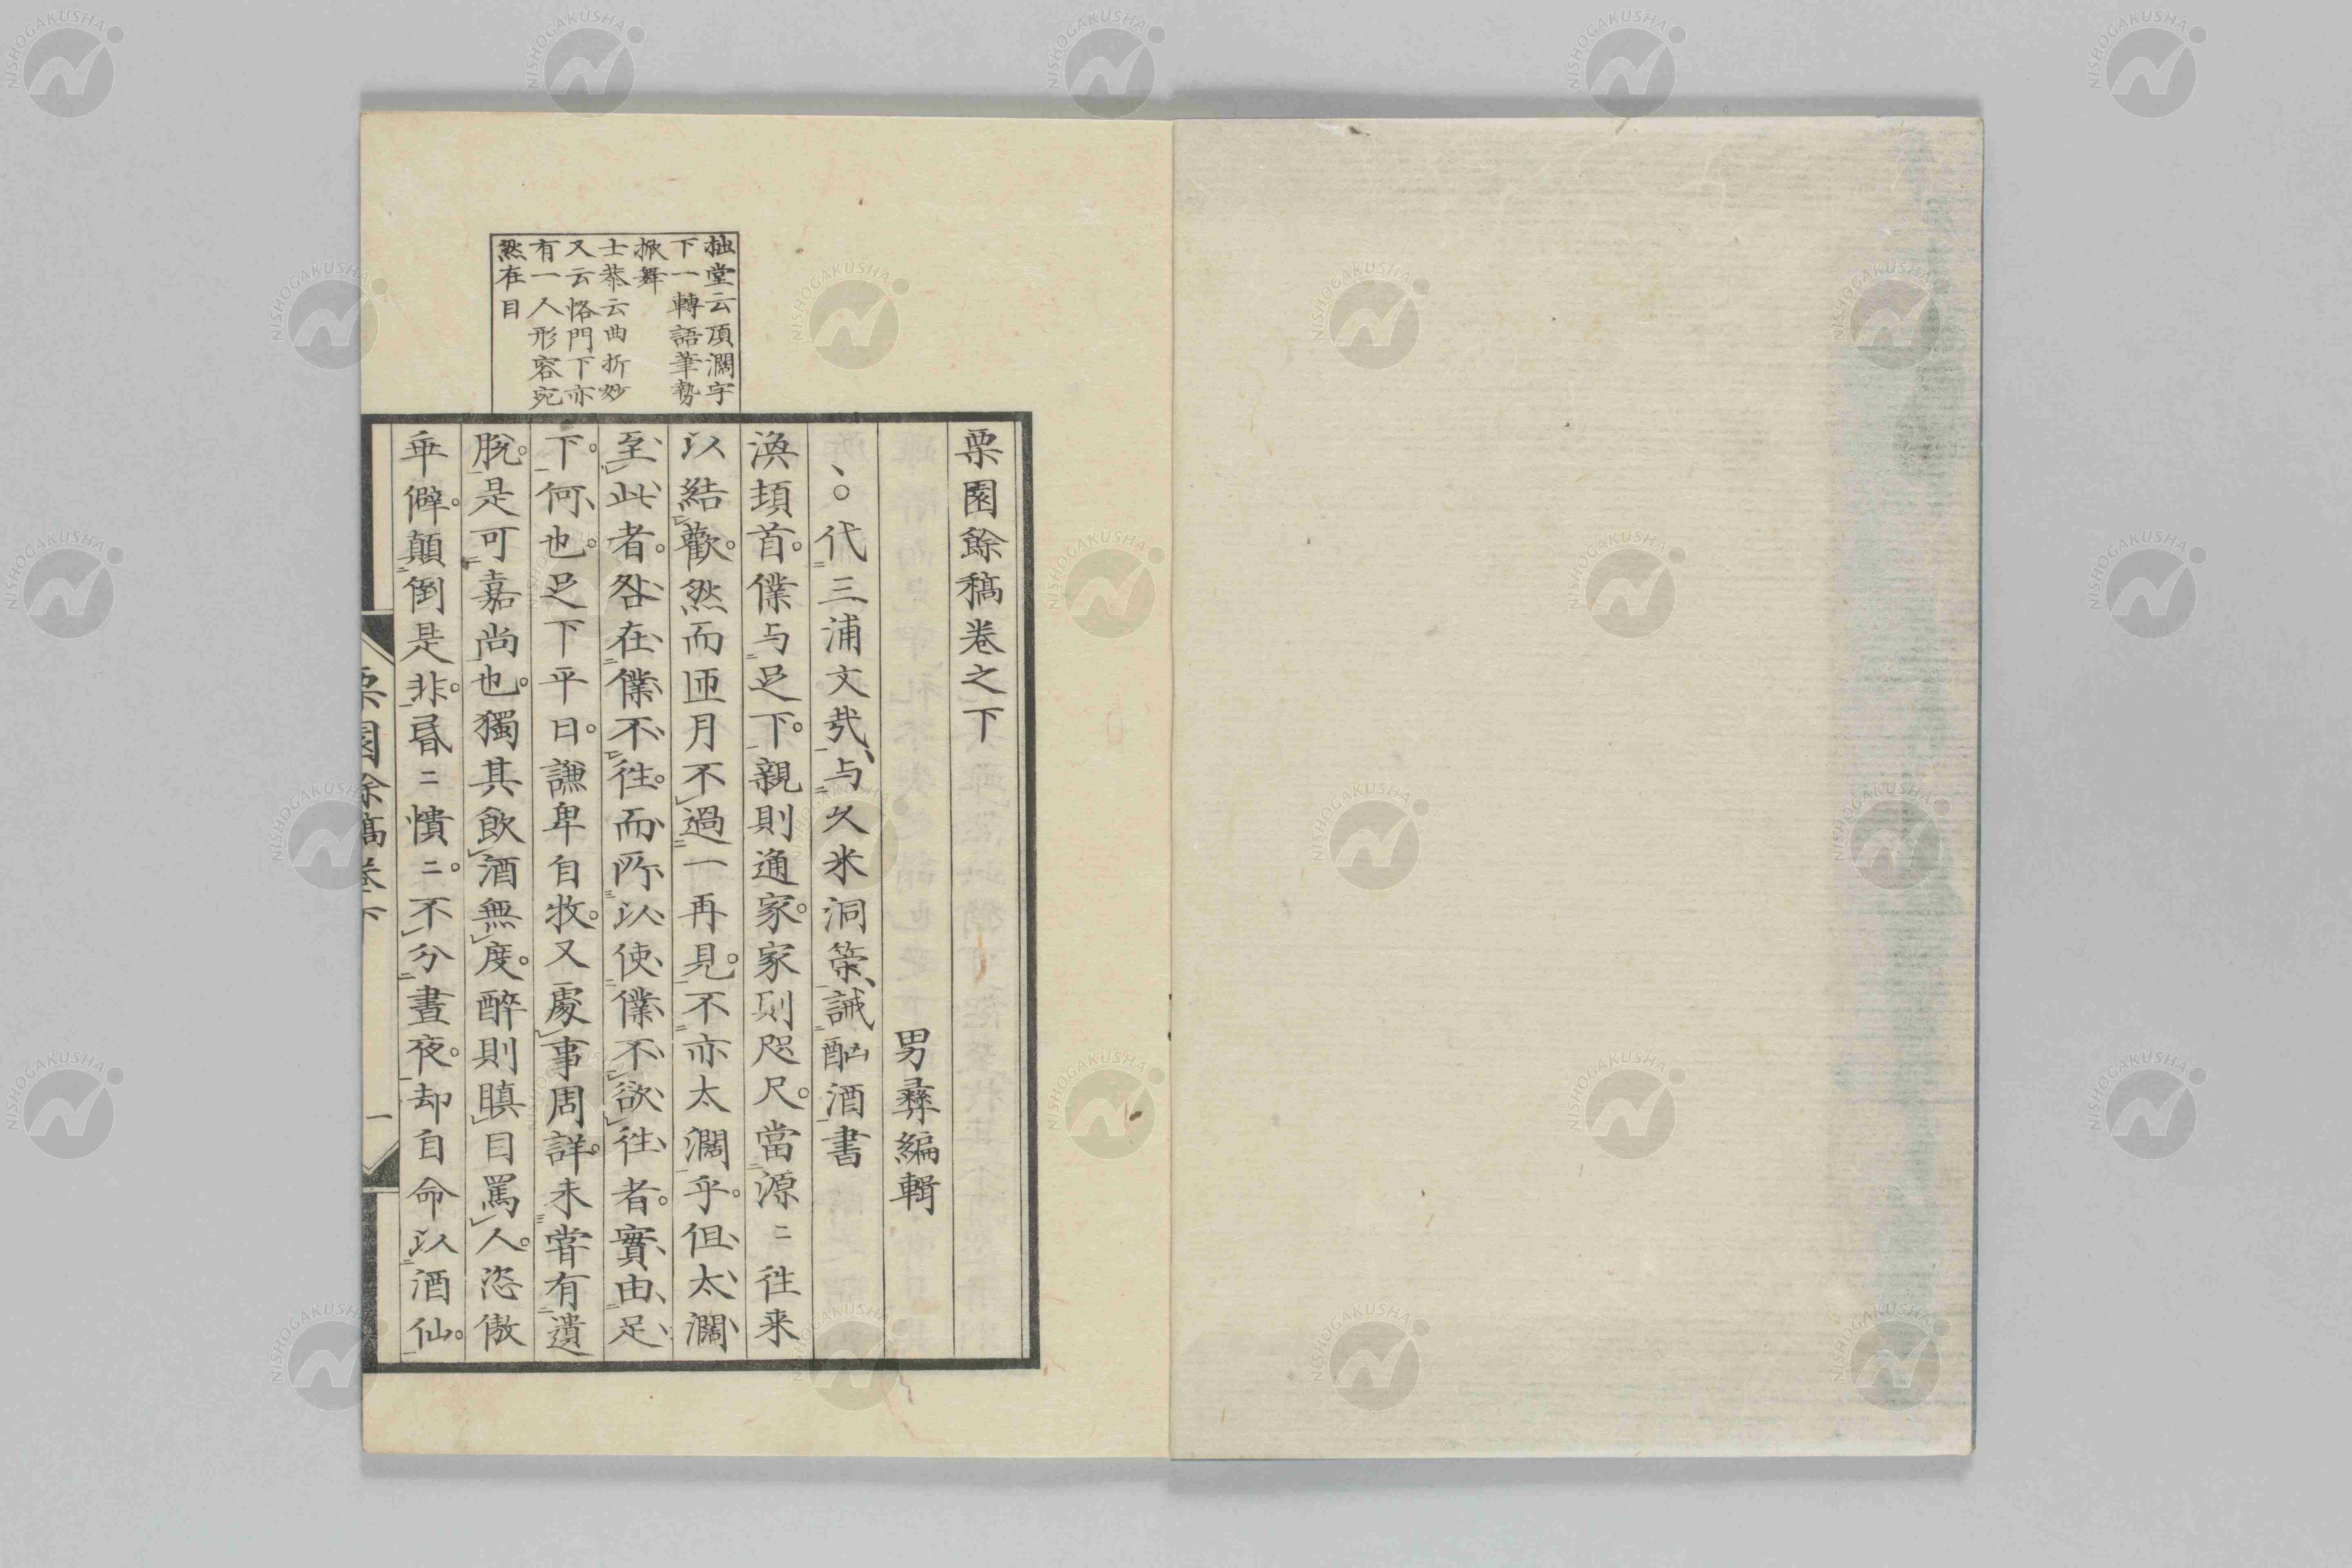 栗園餘稿卷之下
男彞編輯
代三浦文哉与久米洞築誡酗酒書
渙頓首。僕与足下。親則通家。家則咫尺。當源〻往来
以結歡。然而匝月不過一再見。不亦太濶乎。但太濶
至此者。咎在僕不往。而所以使僕不欲往者。實由足
下。何也。足下平日。謙卑自牧。又處事周詳。未甞有遺
脱。是可嘉尚也。獨其飲酒無度。醉則瞋目罵人。恣傲
乖僻。顛倒是非。昬〻憒〻。不分晝夜。却自命以酒仙。
拙堂云頂濶字
下一轉語筆勢
掀舞
士恭云曲折妙
又云恪門下亦
有一人形容宛
然在目
栗園餘稿卷下
一
NISHOGAKUSHA